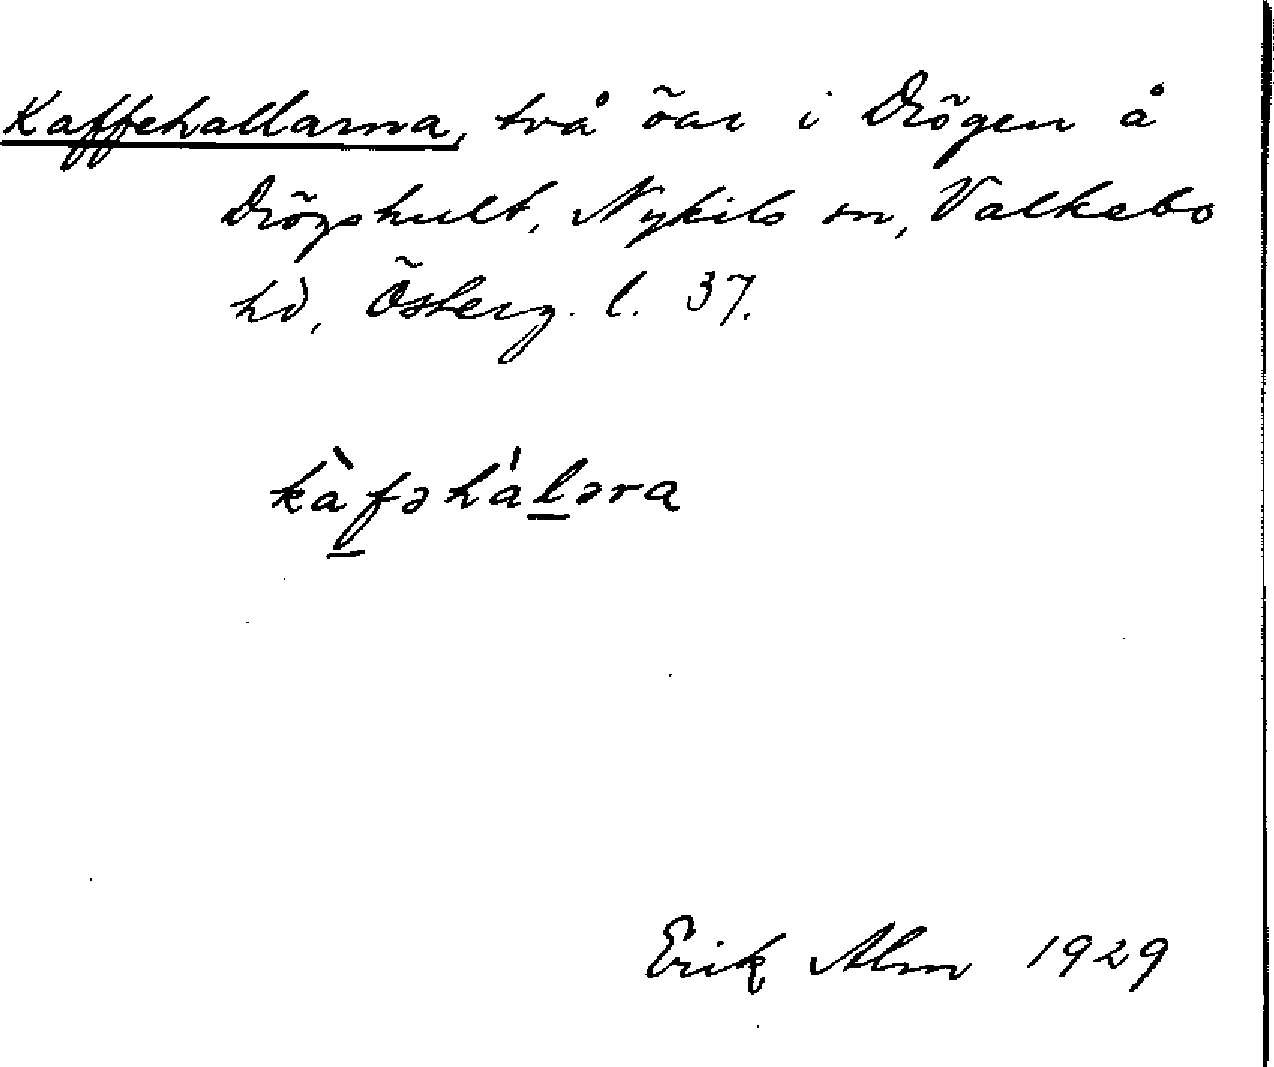 Kaffehallarna, två öar i Drögen å
Drögshult, Nykils sn, Valkebo
hd, Österg. l. 37.
kàfəhálara
Erik Alm 1929